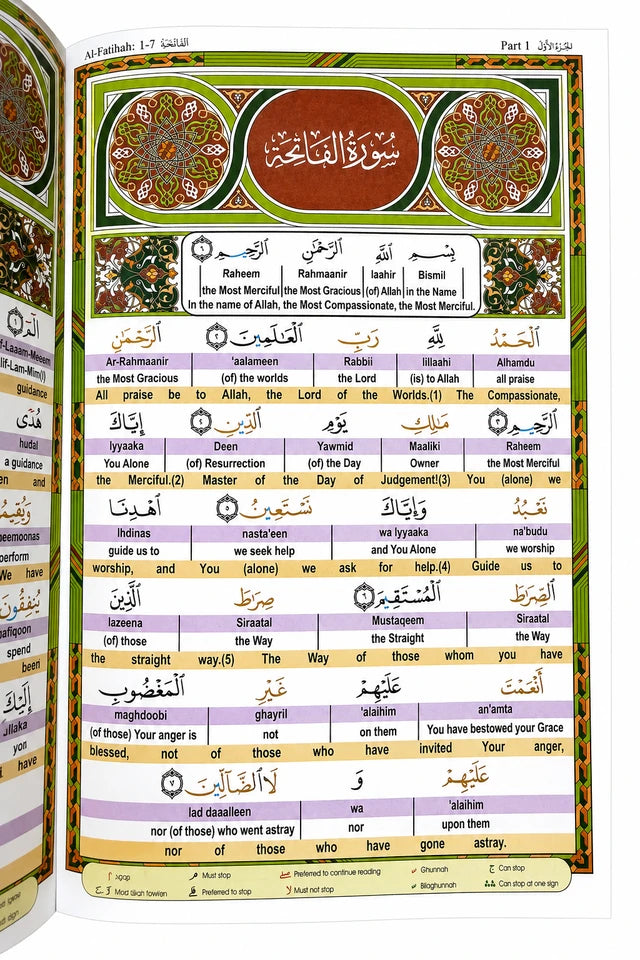 Al-Fatihah: 1-7 الفَاتِحَة
Part 1 الجُزءُ الأوّل
سُورَةُ الفَاتِحَة
بِسۡمِ ٱللَّهِ ٱلرَّحۡمَٰنِ ٱلرَّحِيمِ ١
Raheem Rahmaanir laahir Bismil
the Most Merciful the Most Gracious (of) Allah in the Name
In the name of Allah, the Most Compassionate, the Most Merciful.
ٱلۡحَمۡدُ لِلَّهِ رَبِّ ٱلۡعَٰلَمِينَ ٢ ٱلرَّحۡمَٰنِ
Ar-Rahmaanir 'aalameen Rabbii lillaahi Alhamdu
the Most Gracious (of) the worlds the Lord (is) to Allah all praise
All praise be to Allah, the Lord of the Worlds.(1) The Compassionate,
ٱلرَّحِيمِ ٣ مَٰلِكِ يَوۡمِ ٱلدِّينِ ٤ إِيَّاكَ
Iyyaaka Deen Yawmid Maaliki Raheem
You Alone (of) Resurrection (of) the Day Owner the Most Merciful
the Merciful.(2) Master of the Day of Judgement!(3) You (alone) we
نَعۡبُدُ وَإِيَّاكَ نَسۡتَعِينُ ٥ ٱهۡدِنَا
Ihdinas nasta'een wa Iyyaaka na'budu
guide us to we seek help and You Alone we worship
worship, and You (alone) we ask for help.(4) Guide us to
ٱلصِّرَٰطَ ٱلۡمُسۡتَقِيمَ ٦ صِرَٰطَ ٱلَّذِينَ
lazeena Siraatal Mustaqeem Siraatal
(of) those the Way the Straight the Way
the straight way.(5) The Way of those whom you have
أَنۡعَمۡتَ عَلَيۡهِمۡ غَيۡرِ ٱلۡمَغۡضُوبِ
maghdoobi ghayril 'alaihim an'amta
(of those) Your anger is not on them You have bestowed your Grace
blessed, not of those who have invited Your anger,
عَلَيۡهِمۡ وَ لَا ٱلضَّآلِّينَ ٧
lad daaalleen wa 'alaihim
nor (of those) who went astray nor upon them
nor of those who have gone astray.
Must stop Preferred to continue reading Ghunnah Can stop
Preferred to stop Must not stop Bilaghunnah Can stop at one sign
الٓمٓ ١
-Laaam-Meeem
lif-Lam-Mim(I)
guidance
هُدٗى
hudal
a guidance
en and
eemoonas
perform
We have
يُنفِقُونَ
spend
been
إِلَيۡكَ
have